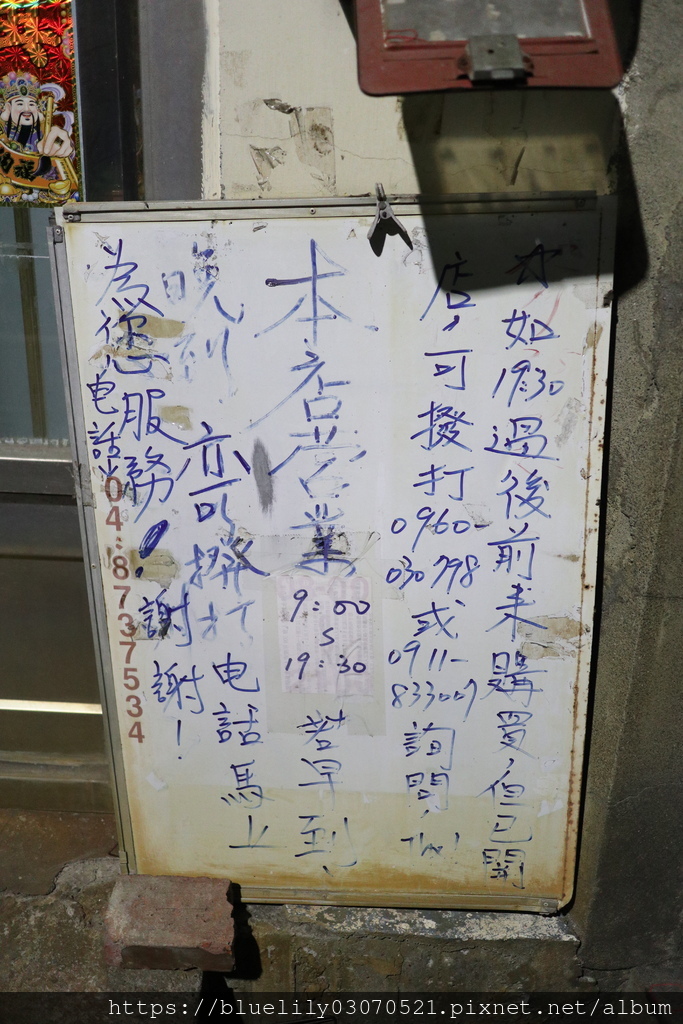 如19:30過後前来購買,但已開
店,可撥打0960-030798或0911-833007詢問,Thx!
本店営業9:00~19:30若早到、
晚到,亦可撥打电話馬上
為您服務!謝謝!
电話04:8737534
https://bluelily03070521.pixnet.net/album